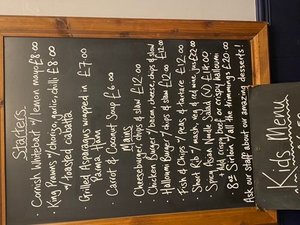 Starters.
· Cornish Whitebait w/ lemon mayo £8.00
· King Prawns w/ chorizo, garlic, chilli £8.00
w/ toasted ciabatta
· Grilled Asparagus wrapped in £7.00
Parma Ham
· Carrot & Soup £6.00
Mains
· Cheeseburger, chips & slaw £12.00
· Chicken Burger w/ bacon cheese, chips & slaw
· Halloumi Burger & chips & slaw £12.00
· Fish & Chips w/ peas & tartare £12.00
· Short Rib w/ mash, veg & red wine jus £22.00
· Spicy Asian Noodle Salad (v) £14.00
+ Add crispy beef or crispy halloumi
· 8oz Sirloin w/ all the trimmings £20.00
Ask our staff about our amazing desserts!
Kids Menu